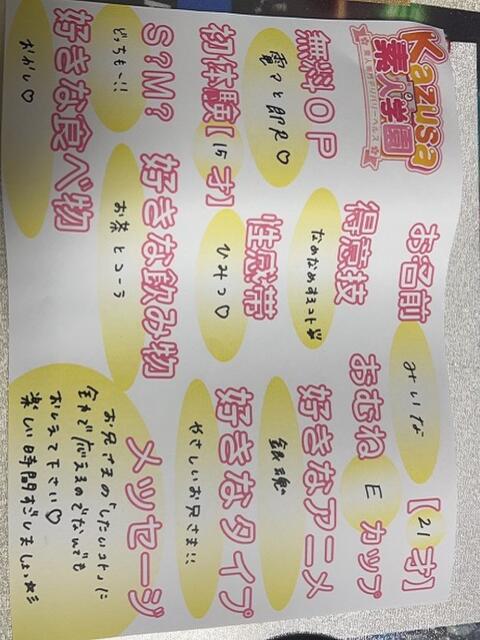 Kazusa
素人学園
素人専門デリバリーヘルス
お名前 みいな 【21才】
無料OP
電マと即尺♡
得意技
なめなめするコト
おむね E カップ
初体験【15才】
性感帯
ひみつ♡
好きなアニメ
銀魂
S?M?
どっちも〜!!
好きな飲み物
お茶とコーラ
好きなタイプ
やさしいお兄さま!!
好きな食べ物
おかし♡
メッセージ
お兄さまの「したいコト」に
全力で応えるのでなんでも
おしえて下さい♡
楽しい時間すごしましょ